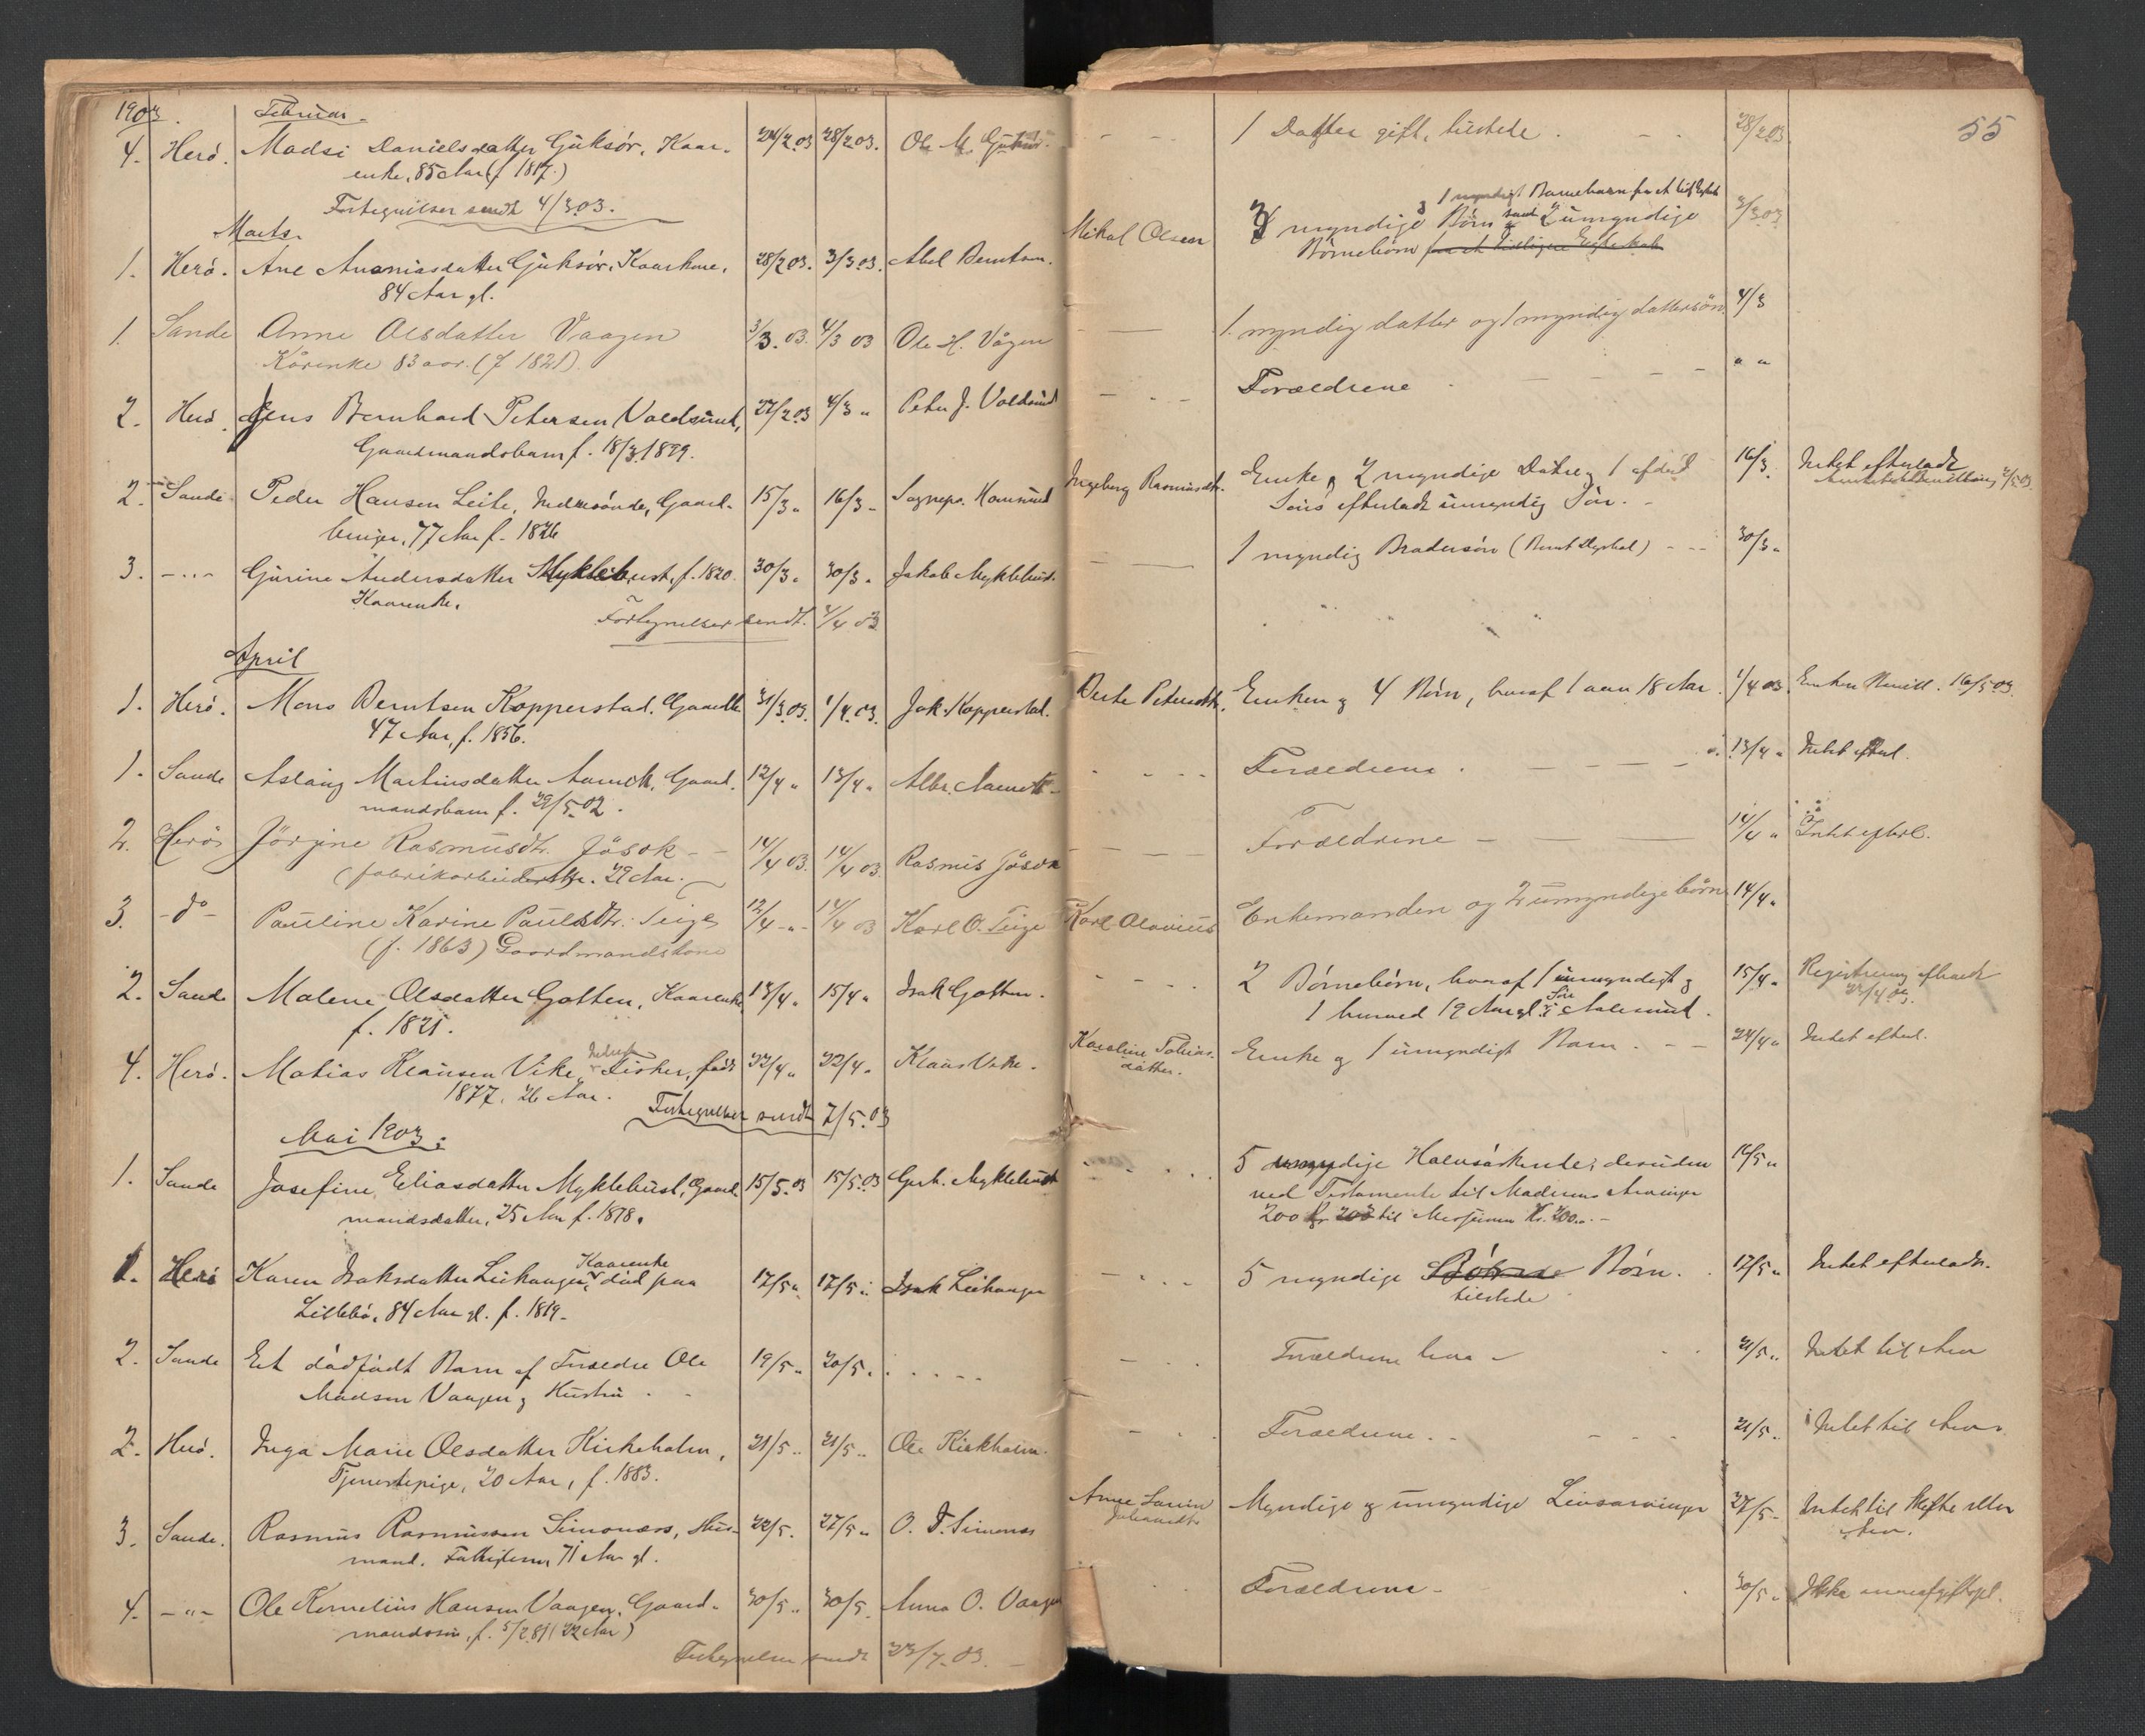 1903. Februar.
55
4. Herö. Madsi Danielsdatter Gjuksör, Kaar- 24/2.03 28/2.03. Ole M. Gjuksör. 1 Datter gift, tilstede. 28/2.03
enke, 85 Aar (f. 1817.)
Fortegnelser sendt 4/3.03.
Marts.
1. Herö. Ane Ananiasdatter Gjuksör, Kaarkone, 28/2.03. 3/3.03. Abel Berntsen. Mikal Olsen 3 myndige Börn samt 2 umyndige 3/3.03
84 Aar gl. Börnebörn
1. Sande Anne Olsdatter Vaagen 3/3.03. 4/3 03 Ole H. Vågen 1 myndig datter og 1 myndig dattersön 4/3
Kårenke 83 aar. (f 1821).
2. Herö. Jens Bernhard Petersen Voldsund, 27/2.03 4/3 " Peter J. Voldsund Forældrene " "
Gaardmandsbarn f. 18/3.1899.
2. Sande Peder Hansen Leite, Gaard- 15/3 " 16/3 - Ingeborg Rasmusdtr. Enke og 2 myndige Døtre og 1 afdød 16/3. Intet efterladt
bruger, 77 Aar f. 1826 Söns efterladt umyndig Sön.
3. -"- Gurine Andersdatter Myklebust, f. 1820. 30/3 " 30/3 " Jakob Myklebust. 1 myndig Brodersön 30/3 "
Kaarenke.
Fortegnelser sendt. 4/4 03
April
1. Herö. Mons Berntsen Kopperstad. Gaardbr. 31/3.03. 1/4.03. Jak. Kopperstad. Berte Petersdtr. Enken og 4 Börn, hvoraf 1 over 18 Aar. 1/4 03 16/5 03.
47 Aar, f. 1856.
1. Sande Aslaug Martinsdatter Aamodt, Gaard- 12/4 " 13/4 " Albr. Aamodt Forældrene. 13/4 " Intet efterl.
mandsbarn f. 29/5.02.
2. Herö Jörgine Rasmusdtr. Jösok 14/4 03. 14/4 03 Rasmus Jösok Forældrene 14/4 " Intet efterl.
29 Aar.
3. -d°- Pauline Karine Paulsdtr. Teige 12/4 -"- 14/4 03 Karl O. Teige Karl Olavius Enkemanden og 2 umyndige börn 14/4 "
(f. 1863) Gaardmandskone
2. Sande Malene Olsdatter Gotten, Kaarenke 13/4 " 15/4 " Isak Gotten. 2 Börnebörn, hvoraf 1 umyndigt og 15/4 " Registrering afholdt
f. 1821. 1 19 Aar gl. i Aalesund.
4. Herö. Matias Klausen Vike, Fisker, född 22/4 " 22/4 " Klaus Vike. Karoline Tobias- Enke og 1 umyndigt Barn. 24/4 " Intet efterl.
1877. 26 Aar. datter.
Fortegnelser sendt 7/5.03
Mai 1903.
1. Sande Josefine Eliasdatter Myklebust, Gaard- 15/5.03 15/5.03 Gert. Myklebust 5 myndige Halvsöskende; desuden 16/5 "
mandsdatter, 25 Aar f. 1878. ved Testamente til Moderens Arvinger
200 til Missionen Kr. 200.
1. Herö Karen Isaksdatter Leikanger, Kaarenke död paa 17/5 " 17/5 " Isak Leikanger 5 myndige Börn. 17/5 " Intet efterladt.
Lillebö. 84 Aar gl. f. 1819. tilstede
2. Sande Et dödfödt Barn af Forældre Ole 19/5 " 20/5. Forældrene leve 21/5 " Intet til Arv
Madsen Vaagen og Hustru.
2. Herö. Inga Marie Olsdatter Kirkeholm, 21/5 " 21/5 " Ole Kirkholm. Forældrene. 21/5 " Intet til Arv
Tjenestepige, 20 Aar, f. 1883.
3. Sande. Rasmus Rasmussen Simonæs, Hus- 22/5. 27/5 " O. D. Simonæs Myndige og umyndige Livsarvinger 27/5 - Intet til Skifte eller
mand. 71 Aar gl. Arv.
4. -"- Ole Kornelius Hansen Vaagen, Gaard- 30/5 " 30/5. Anna O. Vaagen Forældrene 30/5 " Ikke
mandssön, f. 5/2.81 (22 Aar)
Fortegnelser sendt 23/7.03.